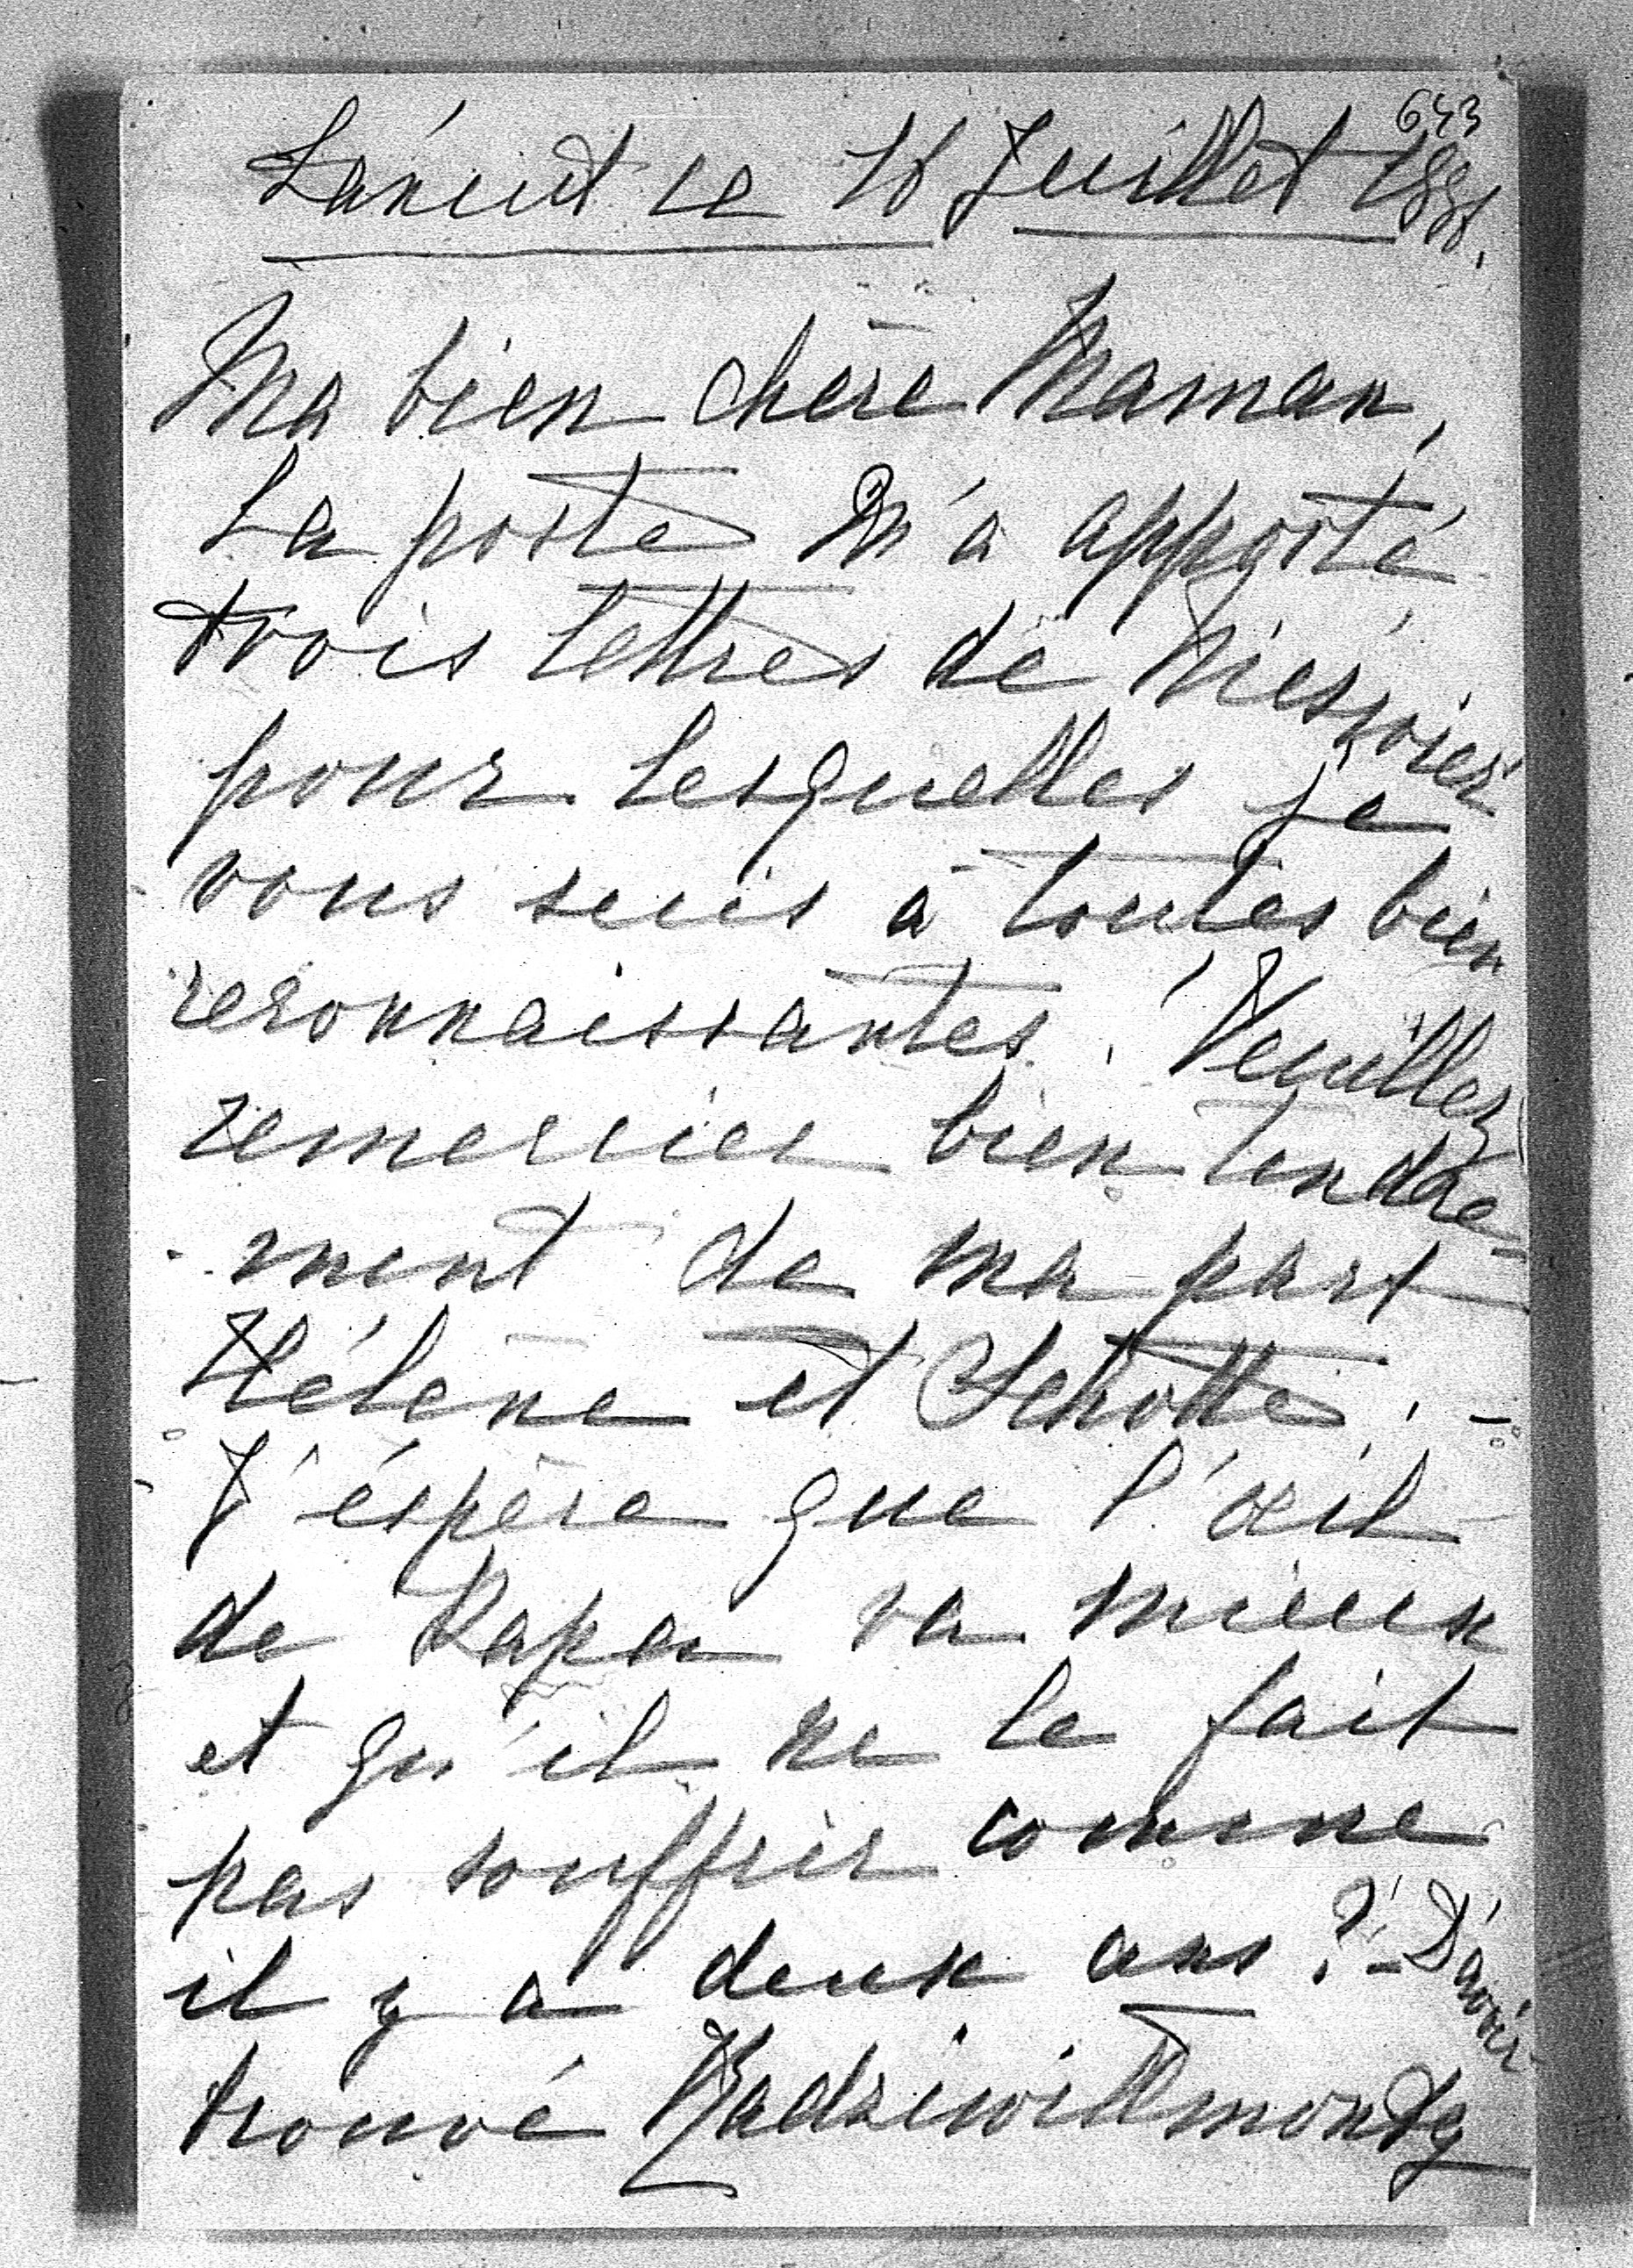 643
Łańcut ce 16 Juillet 1886.
Ma bien chère Maman,
La poste m'a apporté
trois lettres de Nieśwież
pour lesquelles je
vous suis à toutes bien
reconnaissantes. Veuillez
remercier bien tendre-
ment de ma part
Hélène et Schotte. -
J'éspère que l'œil
de Papa va mieux
et qu'il ne le fait
pas souffrir comme
il y a deux ans? - D'avoir
trouvé Radziwillmonty